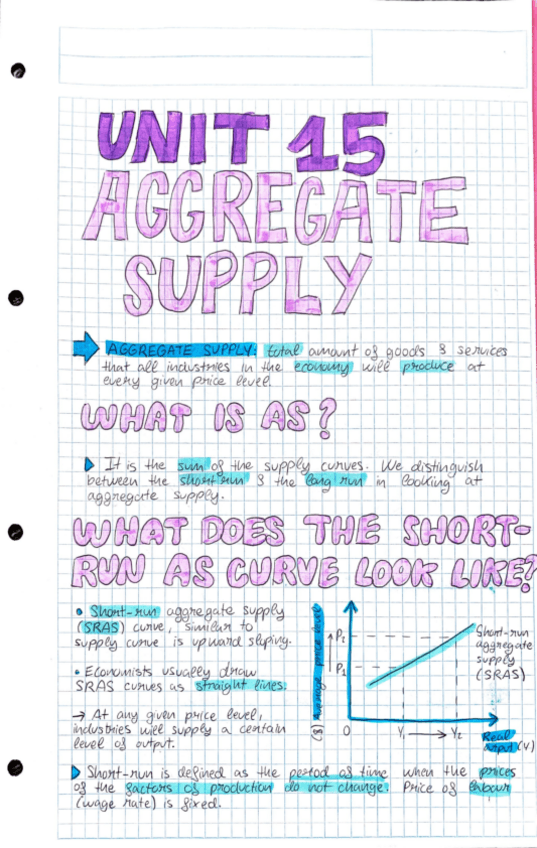 UNIT 15
AGGREGATE
SUPPLY
AGGREGATE SUPPLY: total amount of goods & services
that all industries in the economy will produce at
every given price level.
WHAT IS AS?
It is the sum of the supply curves. We distinguish
between the short-run & the long run in looking at
aggregate supply.
WHAT DOES THE SHORT-
RUN AS CURVE LOOK LIKE?
• Short-run aggregate supply
(SRAS) curve, similar to
supply curve is upward sloping.
• Economists usually draw
SRAS curves as straight lines.
→ At any given price level,
industries will supply a certain
level of output.
Average price level
($)
P₂
P₁
0
Y₁ → Y₂
Short-run
aggregate
supply
(SRAS)
Real
output (Y)
Short-run is defined as the period of time when the prices
of the factors of production do not change. Price of labour
(wage rate) is fixed.